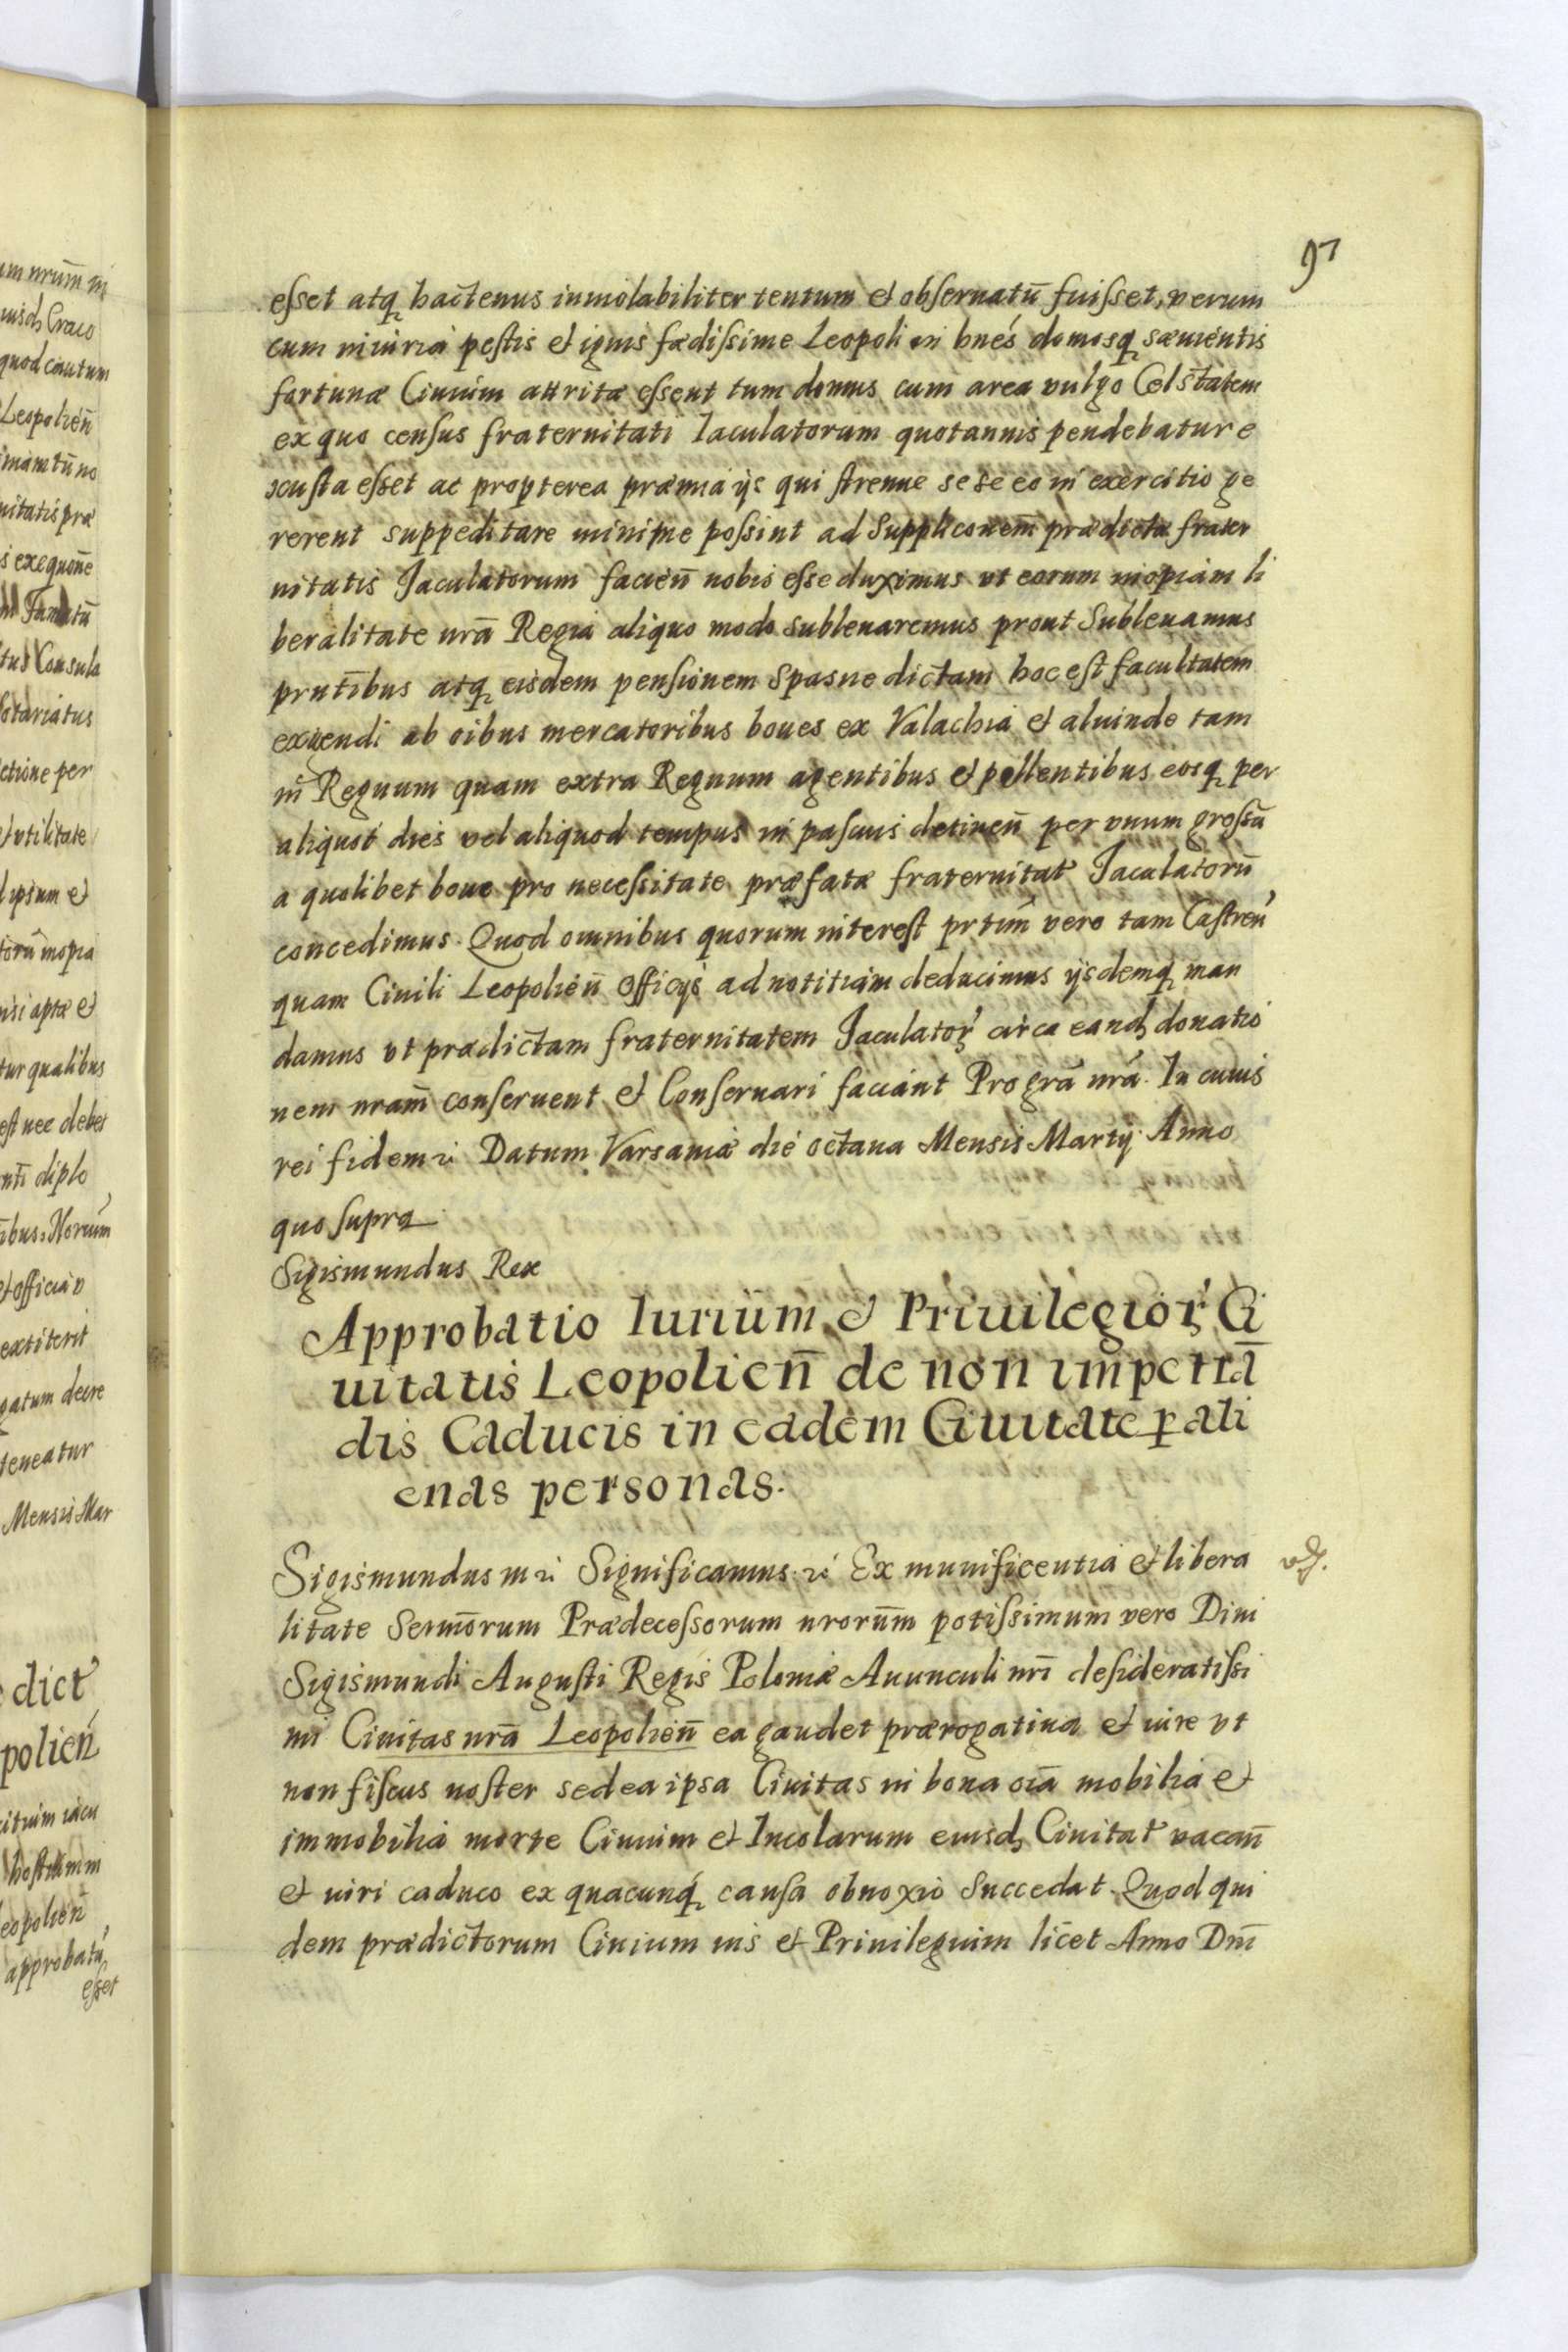 97
esset atq hactenus inviolabiliter tentum et observatū fuisset, verum
cum iniuria pestis et ignis fædissime Leopoli in hnés domosq sævientis
fortunæ Civium attritæ essent tum domus cum area vulgo Celstatem
ex quo census fraternitati Iaculatorum quotannis pendebatur e
xusta esset ac propterea præmia ijs qui strenue sese eo in exercitio ge
rerent suppeditare minime possint ad Supplicōnem prædictæ frater
nitatis Jaculatorum facien̄ nobis esse duximus vt eorum inopiam li
beralitate nrā Regia aliquo modo sublevaremus prout Sublevamus
prntībus atq eisdem pensionem Spasne dictam hoc est facultatem
exigendi ab oībus mercatoribus boves ex Valachia et aliunde tam
in Regnum quam extra Regnum agentibus et pellentibus eosq per
aliquot dies vel aliquod tempus in pascuis detinen̄ per vnum grossū
a quolibet bove pro necessitate præfatæ fraternitat Jaculatorū
concedimus. Quod omnibus quorum interest prtīm vero tam Castren̄
quam Civili Leopolien̄ officijs ad notitiam deducimus ijsdemq man
damus vt prædictam fraternitatem Jaculator circa eand donatio
nem nram̄ conservent et Conservari faciant Pro grā nrā. In cuius
rei fidem &c Datum Varsaviæ die octava Mensis Martij Anno
quo supra
Sigismundus Rex
Approbatio Iurium & Privilegior Ci
vitatis Leopolien̄ de non impetrā
dis Caducis in eadem Civitate ꝑ ali
enas personas.
Sigismundus III &c Significamus &c Ex munificentia et libera
litate Sermōrum Prædecessorum nrorum̄ potissimum vero Divi
Sigismundi Augusti Regis Poloniæ Avunculi nrī desideratissi
mi Civitas nrā Leopolien̄ ea gaudet prærogativa et iure vt
non fiscus noster sed ea ipsa Civitas in bona oīa mobilia et
immobilia morte Civium et Incolarum eiusd Civitat vacan̄
et iuri caduco ex quacunq causa obnoxio Succedat. Quod qui
dem prædictorum Civium ius et Privilegium licet Anno Dnī